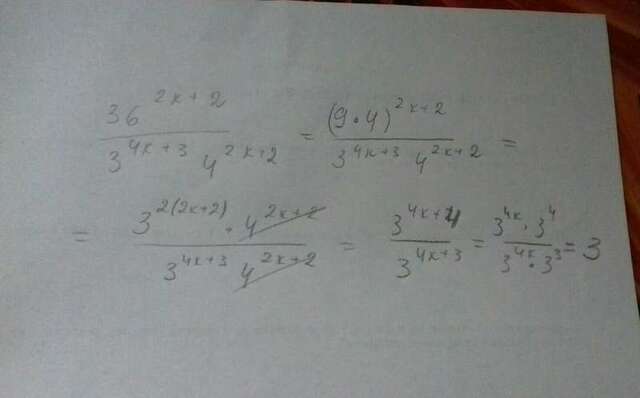 36^(2x+2) / (3^(4x+3) 4^(2x+2)) = (9•4)^(2x+2) / (3^(4x+3) 4^(2x+2)) =
= (3^(2(2x+2)) • 4^(2x+2)) / (3^(4x+3) 4^(2x+2)) = 3^(4x+4) / 3^(4x+3) = (3^(4x) • 3^4) / (3^(4x) • 3^3) = 3